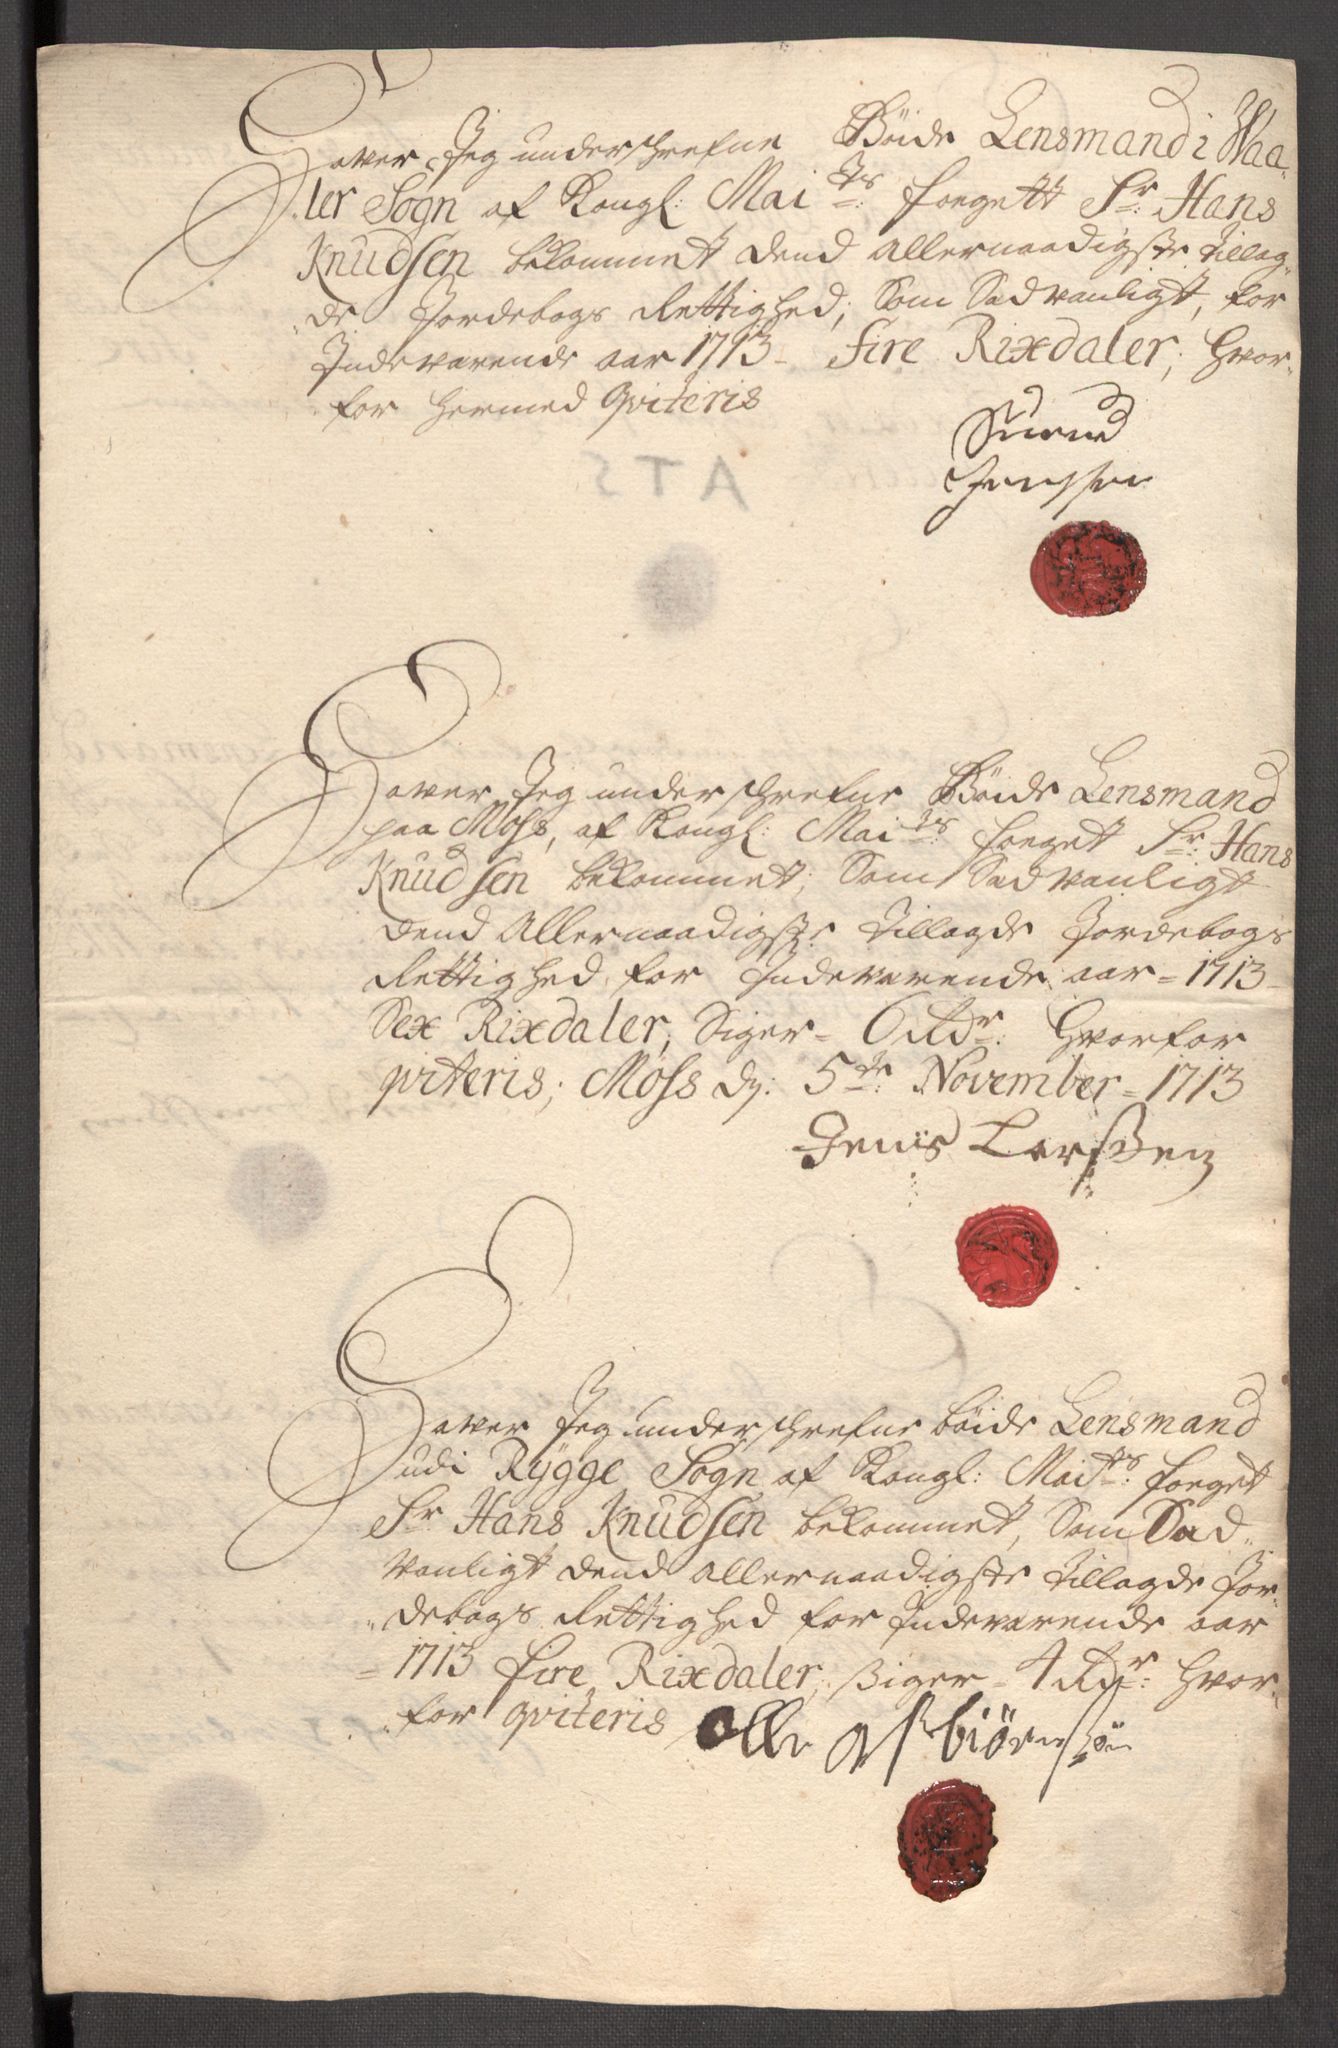 Haver Jeg underschrefne Böide Lensmand i Waa-
ler Sogn af Kongl: Mai:ts foegett Sr: Hans
Knudsen bekommet dend allernaadigste tillag-
de Jordebogs Rettighed, Som Sædvanligt, for
Indeværende aar 1713 - fire Rixdaler, hvor-
for hermed qviteris
Suend
Jenssen
ATS
Haver Jeg underschrefne Böide Lensmand
paa Moss, af Kongl: Mai:ts foeget Sr: Hans
Knudsen bekommet, Som Sædvanligt
dend Allernaadigste tillagde Jordebogs
Rettighed for Indeværende aar = 1713 -
Sex Rixdaler, Siger - 6 Rdr: hvorfor
qviteris; Moss dj: 5te: November = 1713
Jens Larssen
Haver Jeg underschrefne böide Lensmand
udi Rÿgge Sogn af Kongl: Maits: foeget
Sr Hans Knudsen bekommet, Som Sæd-
vanligt dend allernaadigste tillagde Jor-
debogs Rettighed for Indeværende aar
= 1713 fire Rixdaler, siger = 4 Rdr: hvor-
for qviteris olle Asbiörnsön